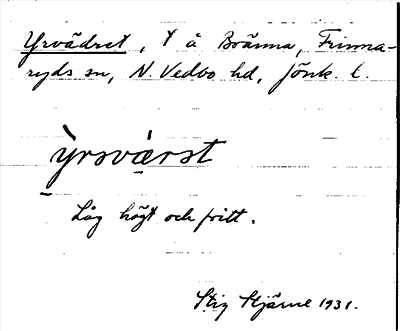 Yrvädret, † å Bränna, Frinna-
ryds sn, N. Vedbo hd, Jönk. l.
ỳrsvàrst
Låg högt och fritt.
Stig Stjärne 1931.